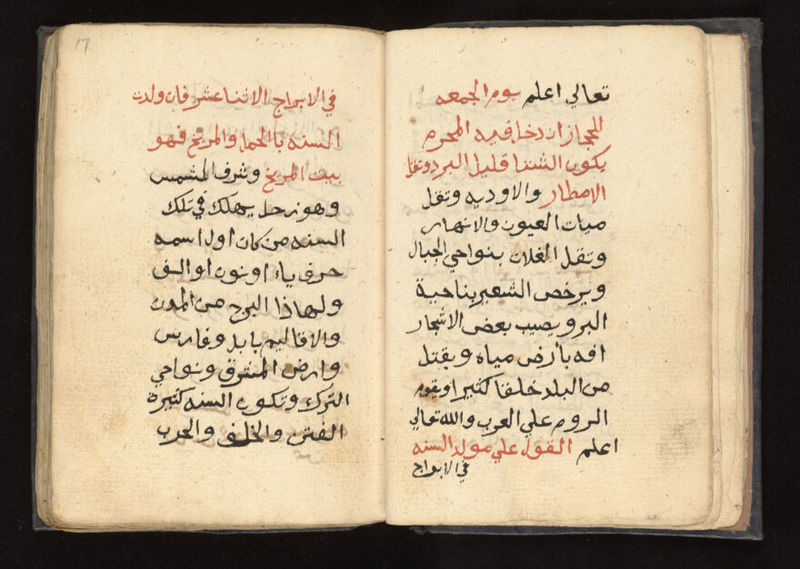 تعالي اعلم يوم الجمعه
يكون الشتا قليل البرد وتقل
الامطار والاوديه وتقل
مياه العيون والانهار
وتقل الغلات بنواحي الجبال
ويرخص الشعير بناحية
البر ويصيب بعض الاشجار
افه بأرض مياه ويقتل
من البلد خلقا كثيرا ويقوم
الروم علي العرب والله تعالي
اعلم القول علي مولد السنه
في الابراج
17
في الابراج الاثنا عشر فان ولدت
السنه بالحمل والمريخ فهو
بيت المريخ وشرف الشمس
وهو زحل يهلك في تلك
السنه من كان اول اسمه
حرف ياء او نون او الف
ولهاذا البرج من المدن
والاقاليم بابل وفارس
وارض المشرق ونواحي
الترك وتكون السنه كثيرة
الفتن والخلف والحرب